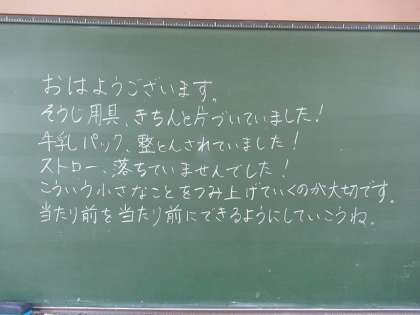 おはようございます。
そうじ用具、きちんと片づいていました!
牛乳パック、整とんされていました!
ストロー、落ちていませんでした!
こういう小さなことをつみ上げていくのが大切です。
当たり前を当たり前にできるようにしていこうね。